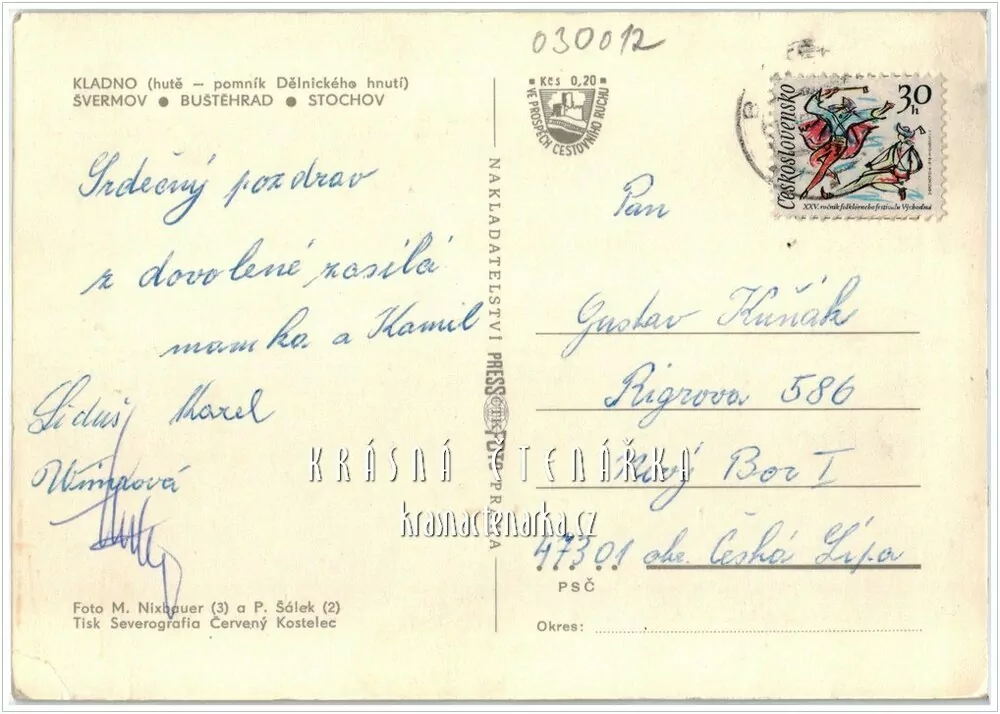 030012
KLADNO (hutě – pomník Dělnického hnutí)
ŠVERMOV ● BUŠTĚHRAD ● STOCHOV
Kčs 0,20
VE PROSPĚCH CESTOVNÍHO RUCHU
Československo
30 h
XXV. ročník folklórneho festivalu Východná
Srdečný pozdrav
z dovolené zasílá
mamka a Kamil
Liduš Karel
NAKLADATELSTVÍ PRESSFOTO PRAHA
ČTK
Pan
Gustav Kuňák
Rigrova 586
Nový Bor I
47301 obc. Česká Lípa
PSČ
Okres:
KRÁSNÁ ČTENÁŘKA
krasnactenarka.cz
Foto M. Nixbauer (3) a P. Šálek (2)
Tisk Severografia Červený Kostelec